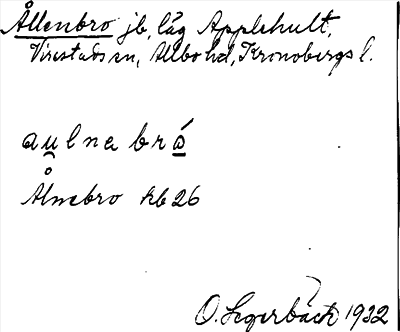 Ållenbro jb, låg Applehult,
Virestads sn, Allbo hd, Kronobergs l.
aulna bró
Ålnebro kb 26
O. Segerbäck 1932